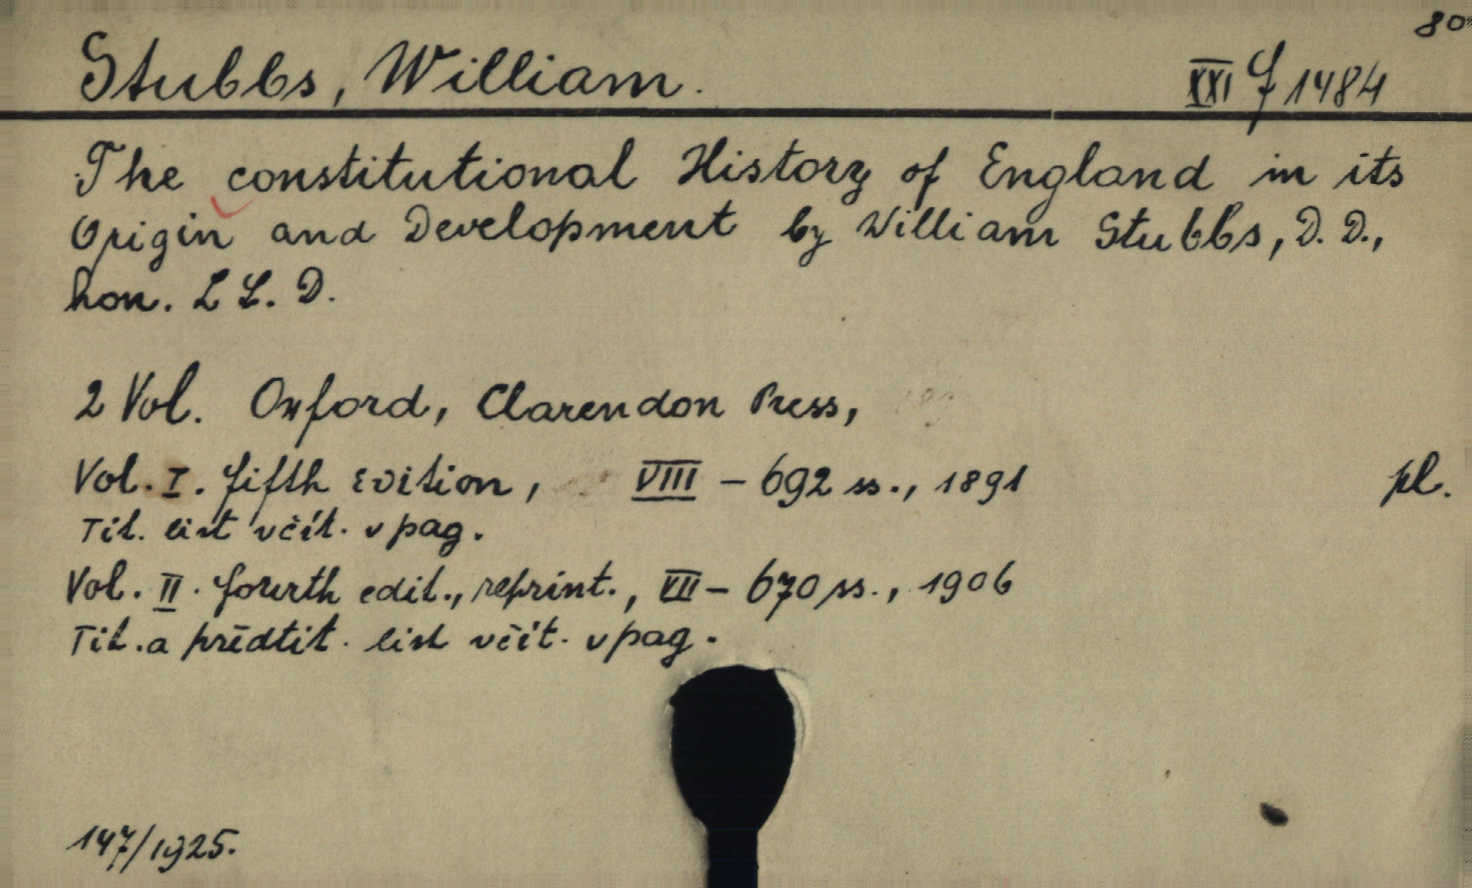 80
Stubbs, William.
XXI J 1484
The constitutional History of England in its
Origin and Development by William Stubbs, D. D.,
hon. L L. D.
2 Vol. Oxford, Clarendon Press,
Vol. I. fifth edition, VIII – 692 ss., 1891 pl.
Tit. list včít. v pag.
Vol. II. fourth edit., reprint., VII – 670 ss., 1906
Tit. a předtit. list včít. v pag.
147/1925.